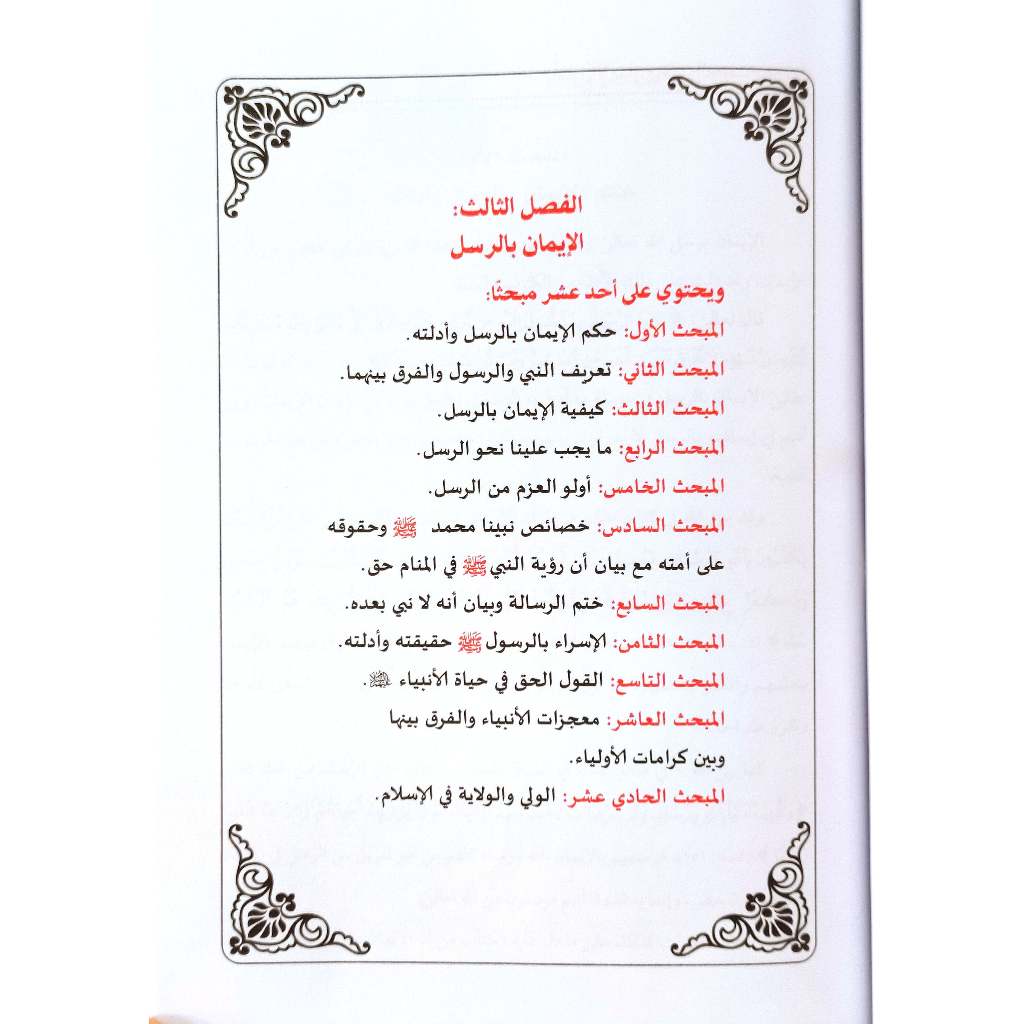 الفصل الثالث:
الإيمان بالرسل
ويحتوي على أحد عشر مبحثًا:
المبحث الأول: حكم الإيمان بالرسل وأدلته.
المبحث الثاني: تعريف النبي والرسول والفرق بينهما.
المبحث الثالث: كيفية الإيمان بالرسل.
المبحث الرابع: ما يجب علينا نحو الرسل.
المبحث الخامس: أولو العزم من الرسل.
المبحث السادس: خصائص نبينا محمد ﷺ وحقوقه
على أمته مع بيان أن رؤية النبي ﷺ في المنام حق.
المبحث السابع: ختم الرسالة وبيان أنه لا نبي بعده.
المبحث الثامن: الإسراء بالرسول ﷺ حقيقته وأدلته.
المبحث التاسع: القول الحق في حياة الأنبياء .
المبحث العاشر: معجزات الأنبياء والفرق بينها
وبين كرامات الأولياء.
المبحث الحادي عشر: الولي والولاية في الإسلام.